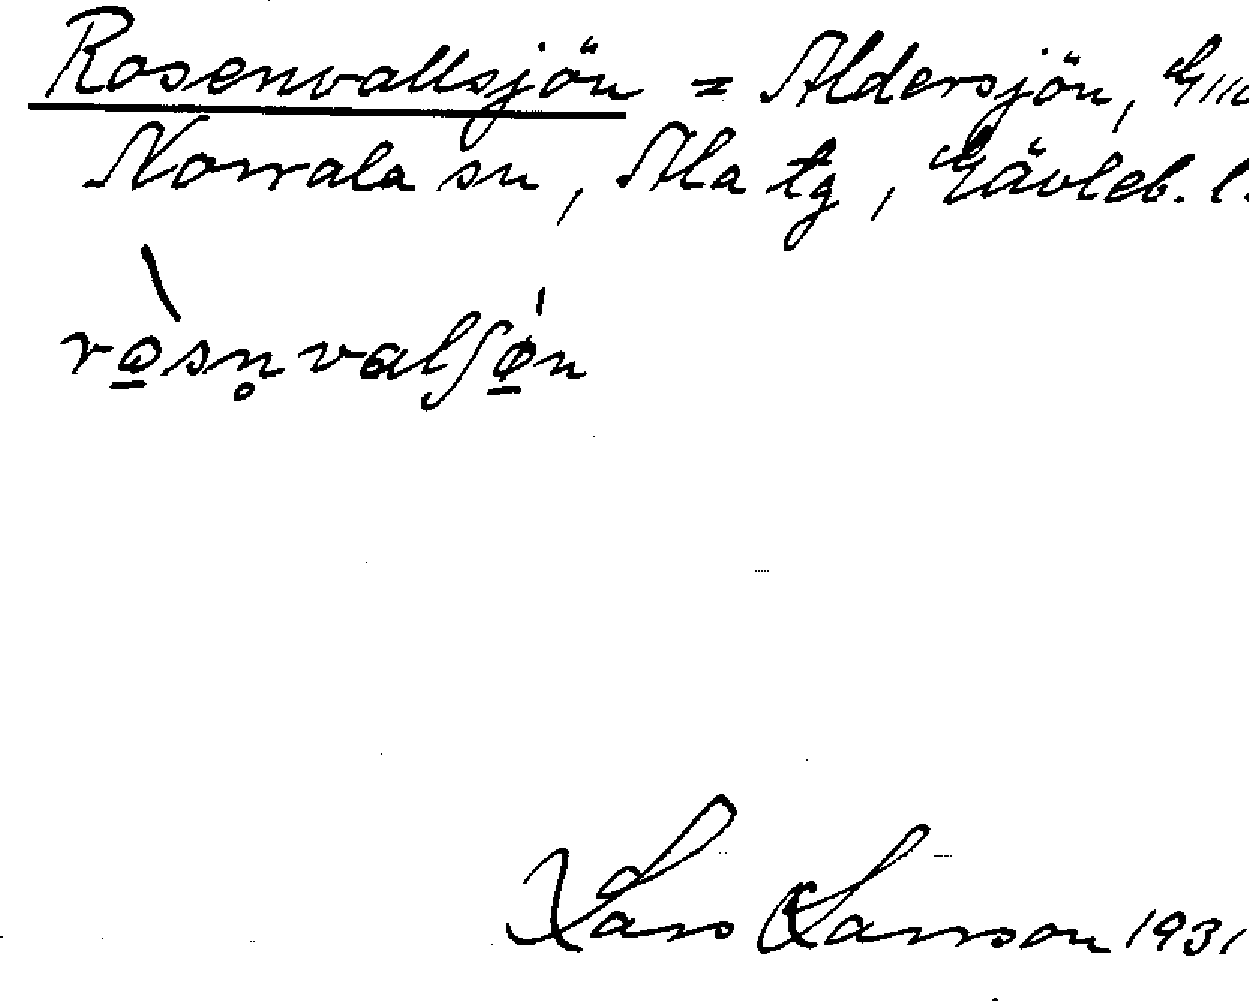 Rosenvallsjön = Aldersjön,
Norrala sn, Ala tg, Gävleb. l.
rò̱sn̥valʃǿ̱n
Lars Larsson 1931